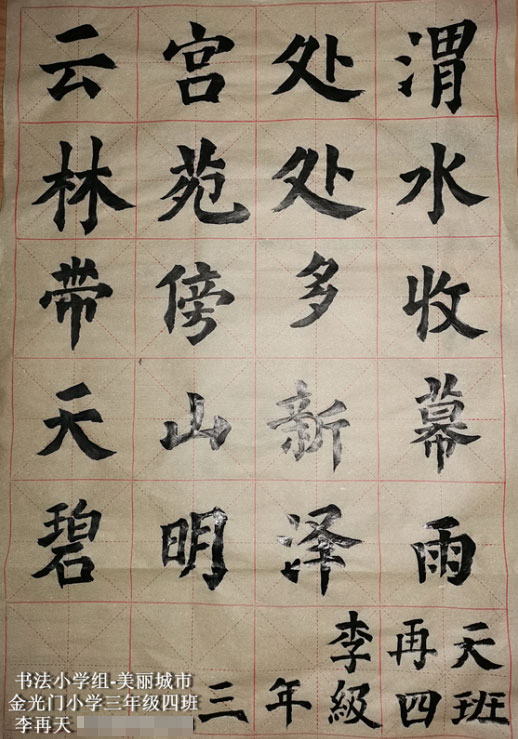 渭水收幕雨
处处多新泽
宫苑傍山明
云林带天碧
李再天
三年級四班
书法小学组-美丽城市
金光门小学三年级四班
李再天